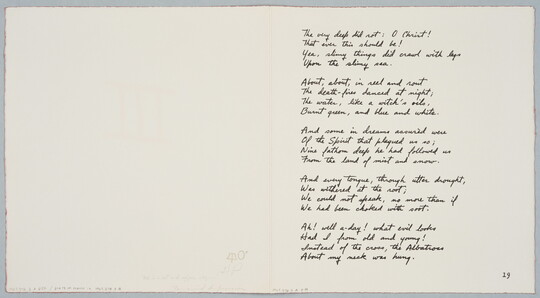 The very deep did rot: O Christ!
That ever this should be!
Yea, slimy things did crawl with legs
Upon the slimy sea.

About, about, in reel and rout
The death-fires danced at night;
The water, like a witch's oils,
Burnt green, and blue and white.

And some in dreams assured were
Of the Spirit that plagued us so;
Nine fathom deep he had followed us
From the land of mist and snow.

And every tongue, through utter drought,
Was withered at the root;
We could not speak, no more than if
We had been choked with soot.

Ah! well a-day! what evil looks
Had I from old and young!
Instead of the cross, the Albatross
About my neck was hung.

29